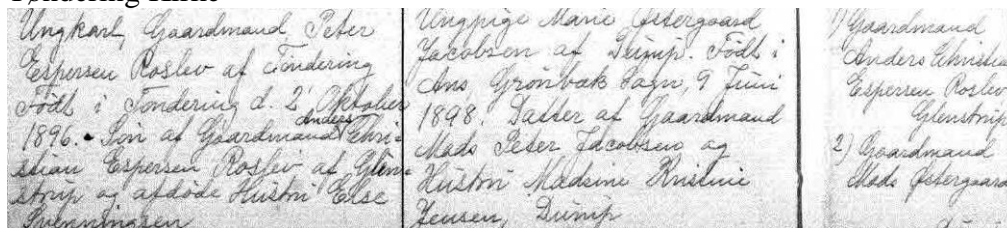 Tøndering Kirke
Ungkarl, Gaardmand, Peter
Espersen Roslev af Tøndering
Født i Tøndering d. 2' Oktober
1896. Søn af Gaardmand Anders Chri-
stian Espersen Roslev af Glen-
strup og afdøde Hustru Else
Svenningsen
Ungpige Marie Østergaard
Jacobsen af Dürup. Født i
Ans, Grønbæk Sogn, 9 Juni
1898. Datter af Gaardmand
Mads Peter Jacobsen og
Hustru Madsine Kristine
Jensen, Dürup
1) Gaardmand
Anders Christia
Espersen Roslev
Glenstrup
2) Gaardmand
Mads Østergaard